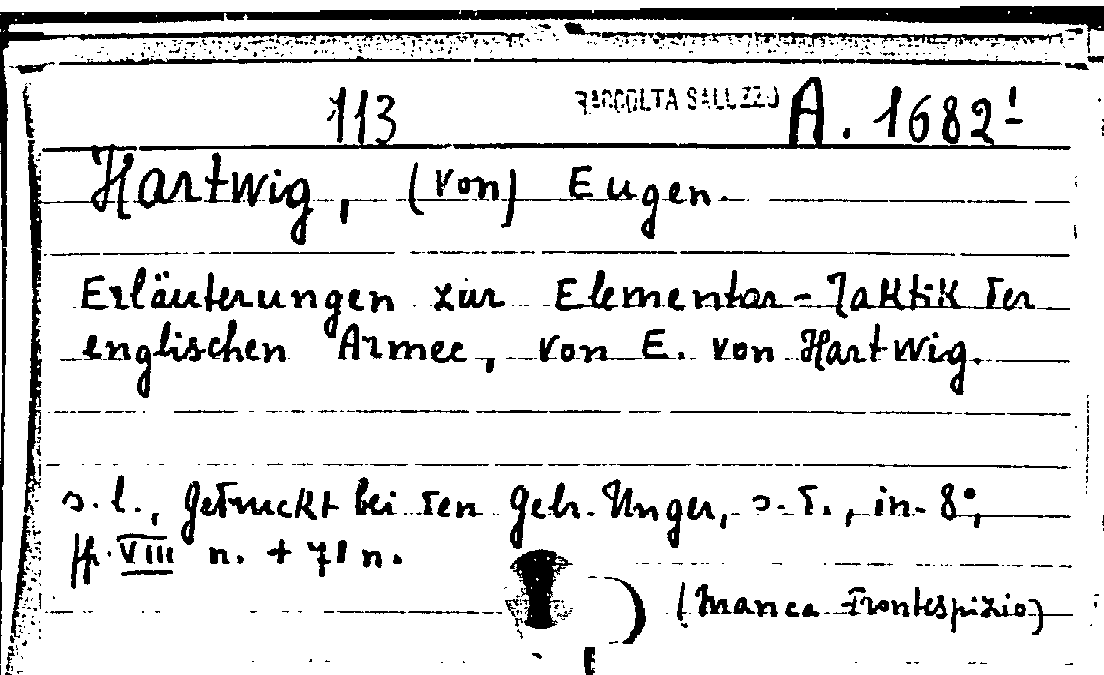 113 RACCOLTA SALUZZO A. 1682¹
Hartwig, (von) Eugen.
Erläuterungen zur Elementar-Taktik der
englischen Armee, von E. von Hartwig.
s. l., Gedruckt bei den Gebr. Unger, s. d., in-8°,
pp. VIII n. + 71 n.
(Manca frontespizio)